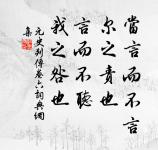 當言而不言
尔之責也
言而不聽
我之咎也
元史列傳卷六詞典網
集